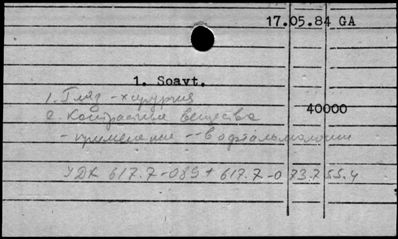 17.05.84 GA
1. Soavt.
1. Глаз - хирургия
40000
2. Контрастные вещества
- применение -- в офтальмологии
УДК 617.7-089 + 617.7-073.755.4